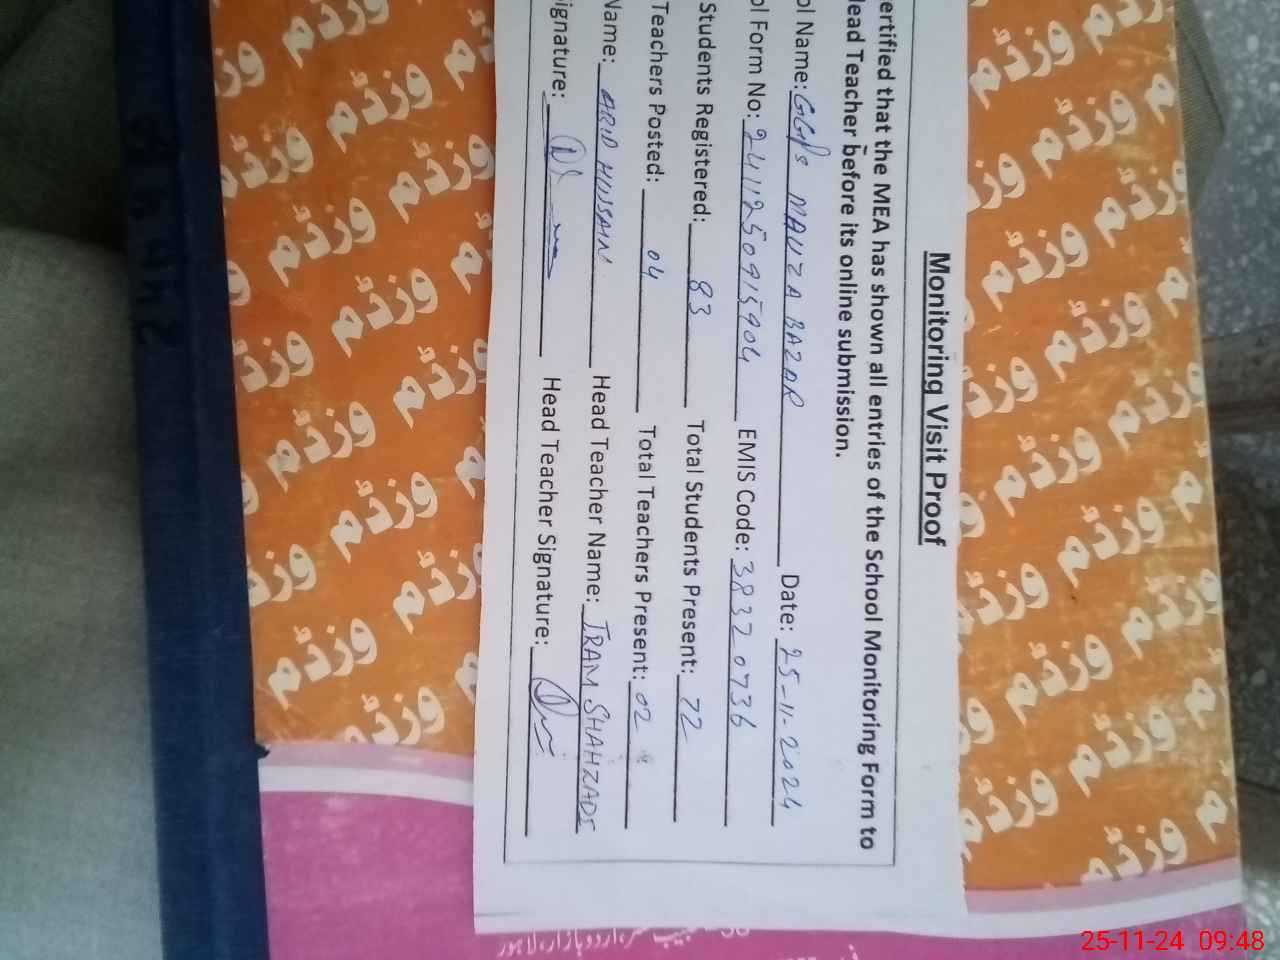 Monitoring Visit Proof
ertified that the MEA has shown all entries of the School Monitoring Form to
lead Teacher before its online submission.
ol Name: GGPS MAUZA BAZAR Date: 25-11-2024
ol Form No: 2411250915904 EMIS Code: 38320736
Students Registered: 83 Total Students Present: 72
Teachers Posted: 04 Total Teachers Present: 02
Name: ARID HUSSAIN Head Teacher Name: IRAM SHAHZADI
ignature: Head Teacher Signature:
وزڈم
اردو بازار، لاہور
25-11-24 09:48